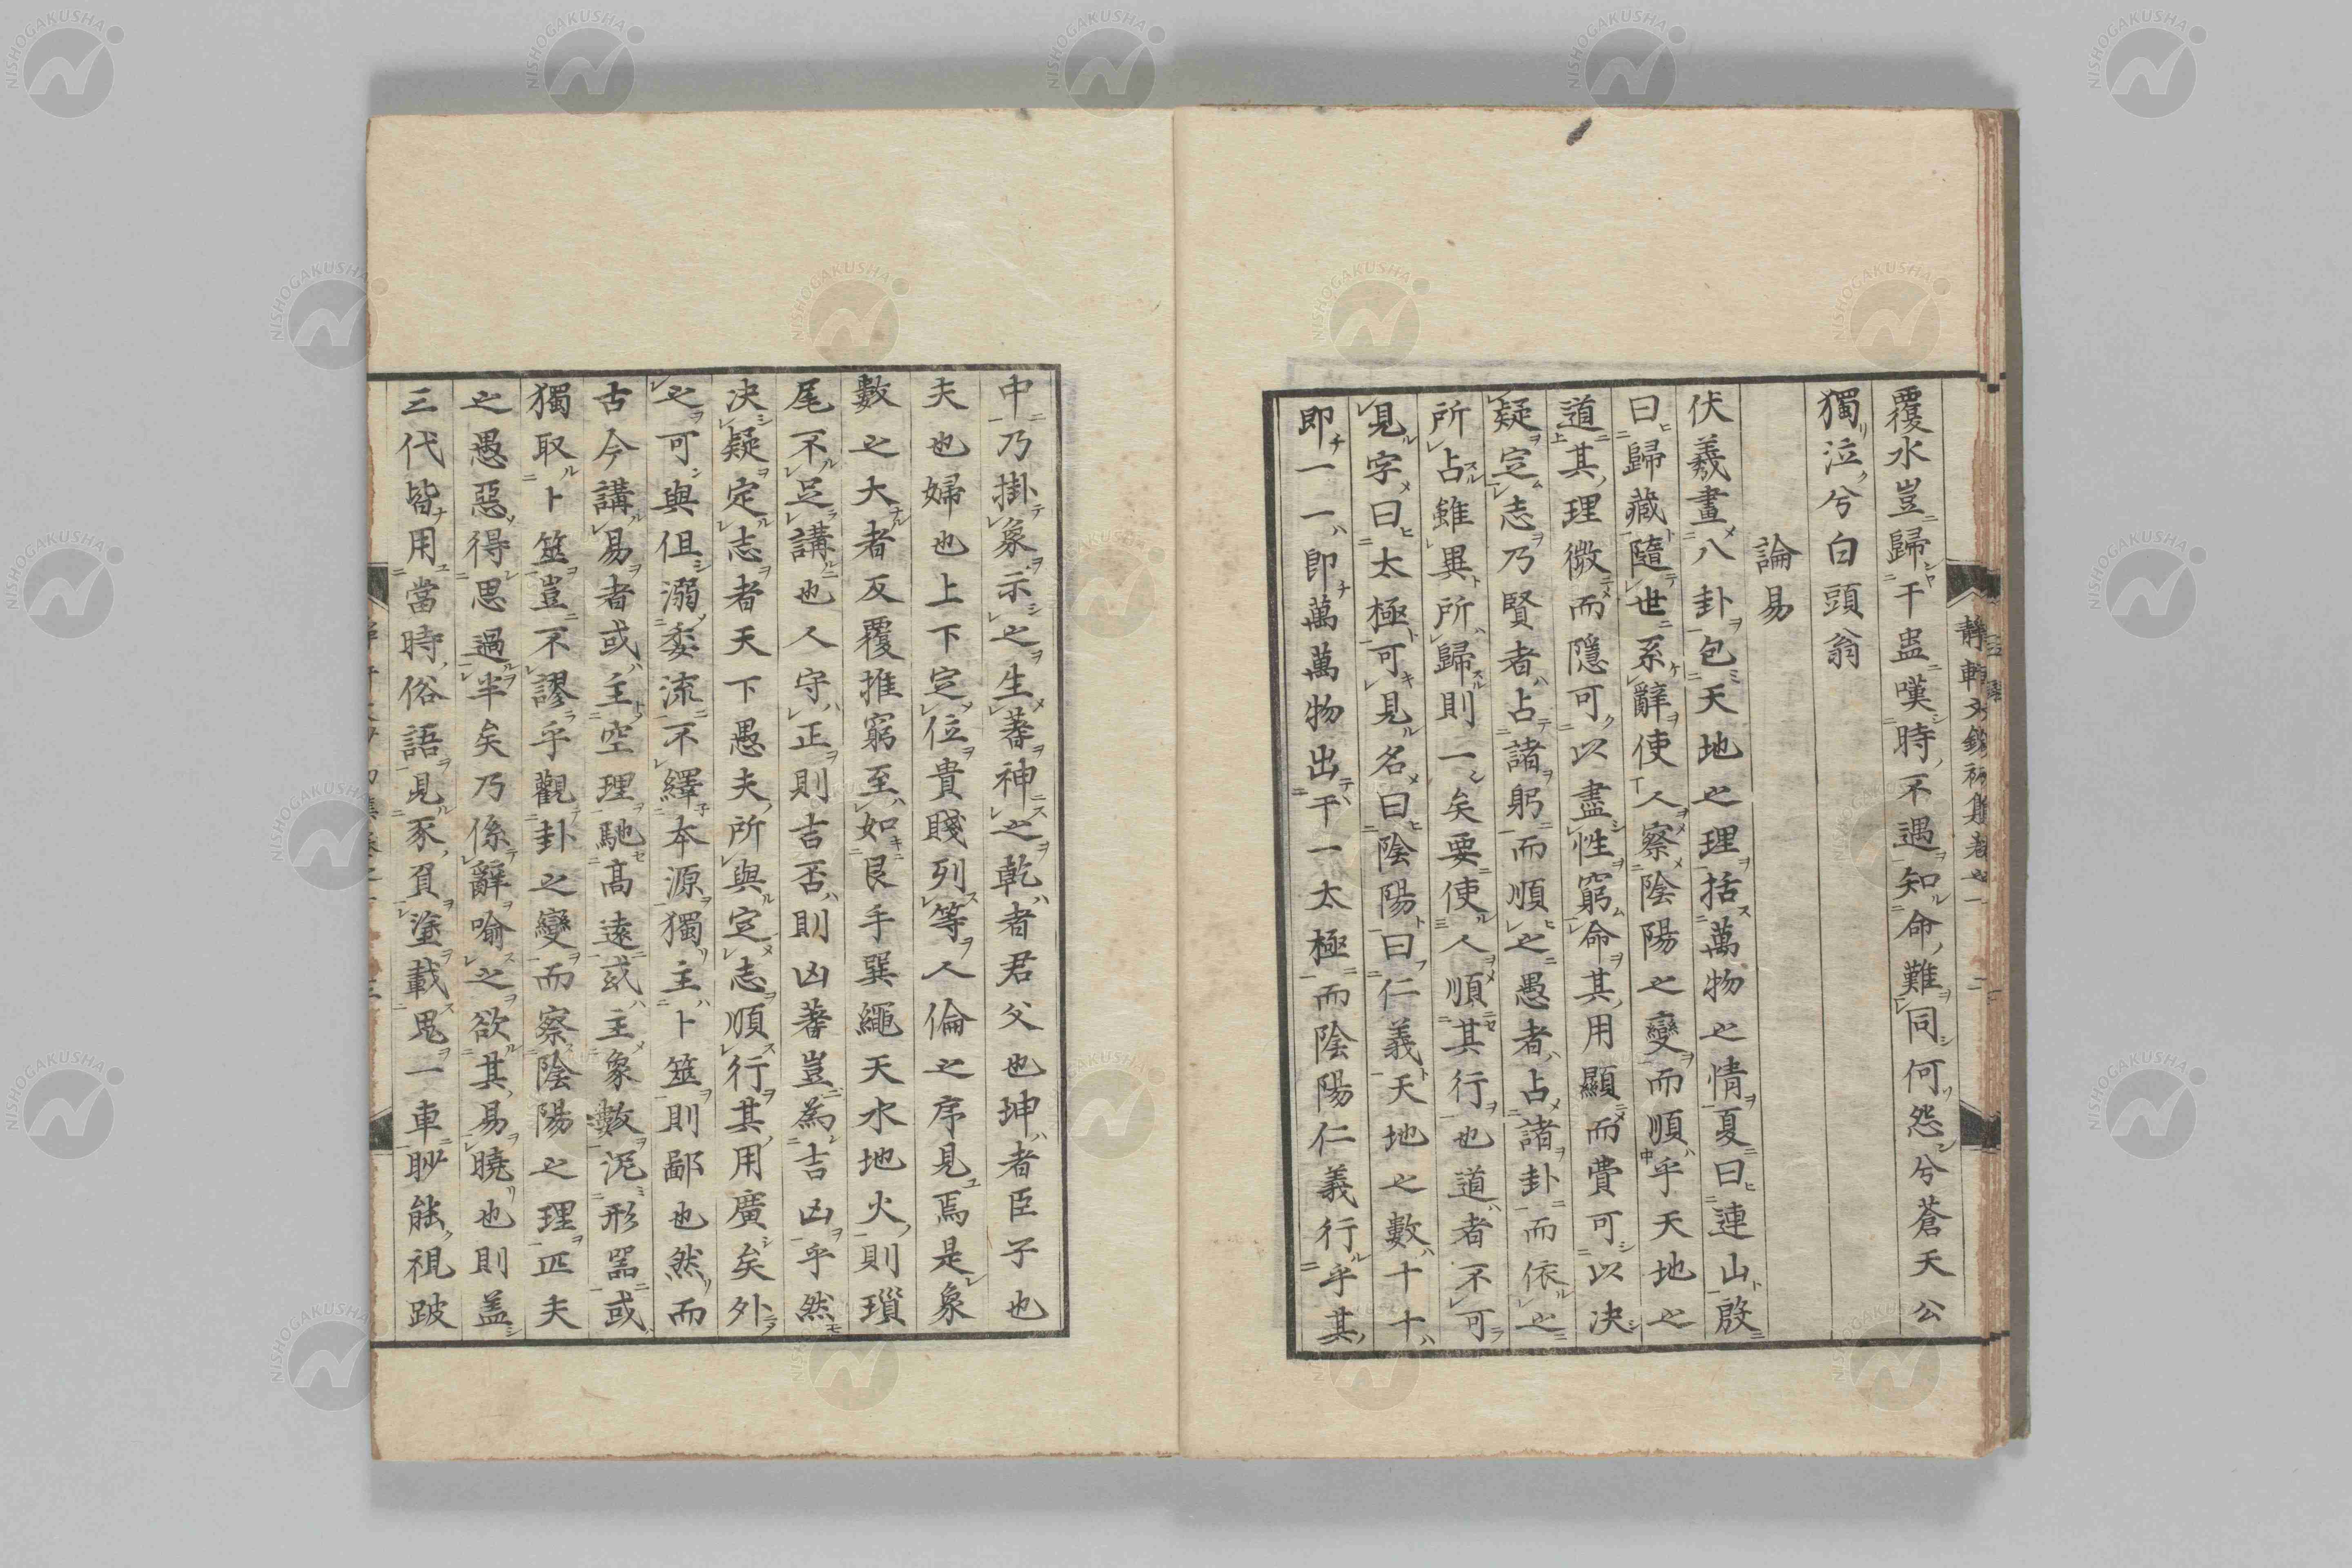 覆水豈歸干盅嘆時不遇知命難同何怨兮蒼天公
獨泣兮白頭翁
論易
伏羲畫八卦包天地之理括萬物之情夏曰連山殷
曰歸藏隨世系辭使人察陰陽之變而順乎天地之
道其理微而隱可以盡性窮命其用顯而費可以決
疑定志乃賢者占諸躬而順之愚者占諸卦而依之
所占雖異所歸則一矣要使人順其行也道者不可
見字曰太極可見名曰陰陽曰仁義天地之數十十
即一一即萬萬物出干一太極而陰陽仁義行乎其
中乃掛象示之生蓍神之乾者君父也坤者臣子也
夫也婦也上下定位貴賤列等人倫之序見焉是象
數之大者反覆推窮至如艮手巽繩天水地火則瑣
尾不足講也人守正則吉否則凶蓍豈為吉凶乎然
決疑定志者天下愚夫所與定志順行其用廣矣外
之可與但溺委流不繹本源獨主卜筮則鄙也然而
古今講易者或主空理馳高遠或主象數泥形器或
獨取卜筮豈不謬乎觀卦之變而察陰陽之理匹夫
之愚惡得思過半矣乃係辭喻之欲其易曉也則盖
三代皆用當時俗語見豕負塗載鬼一車眇能視跛
静軒文鈔初集卷之一
NISHOGAKUSHA